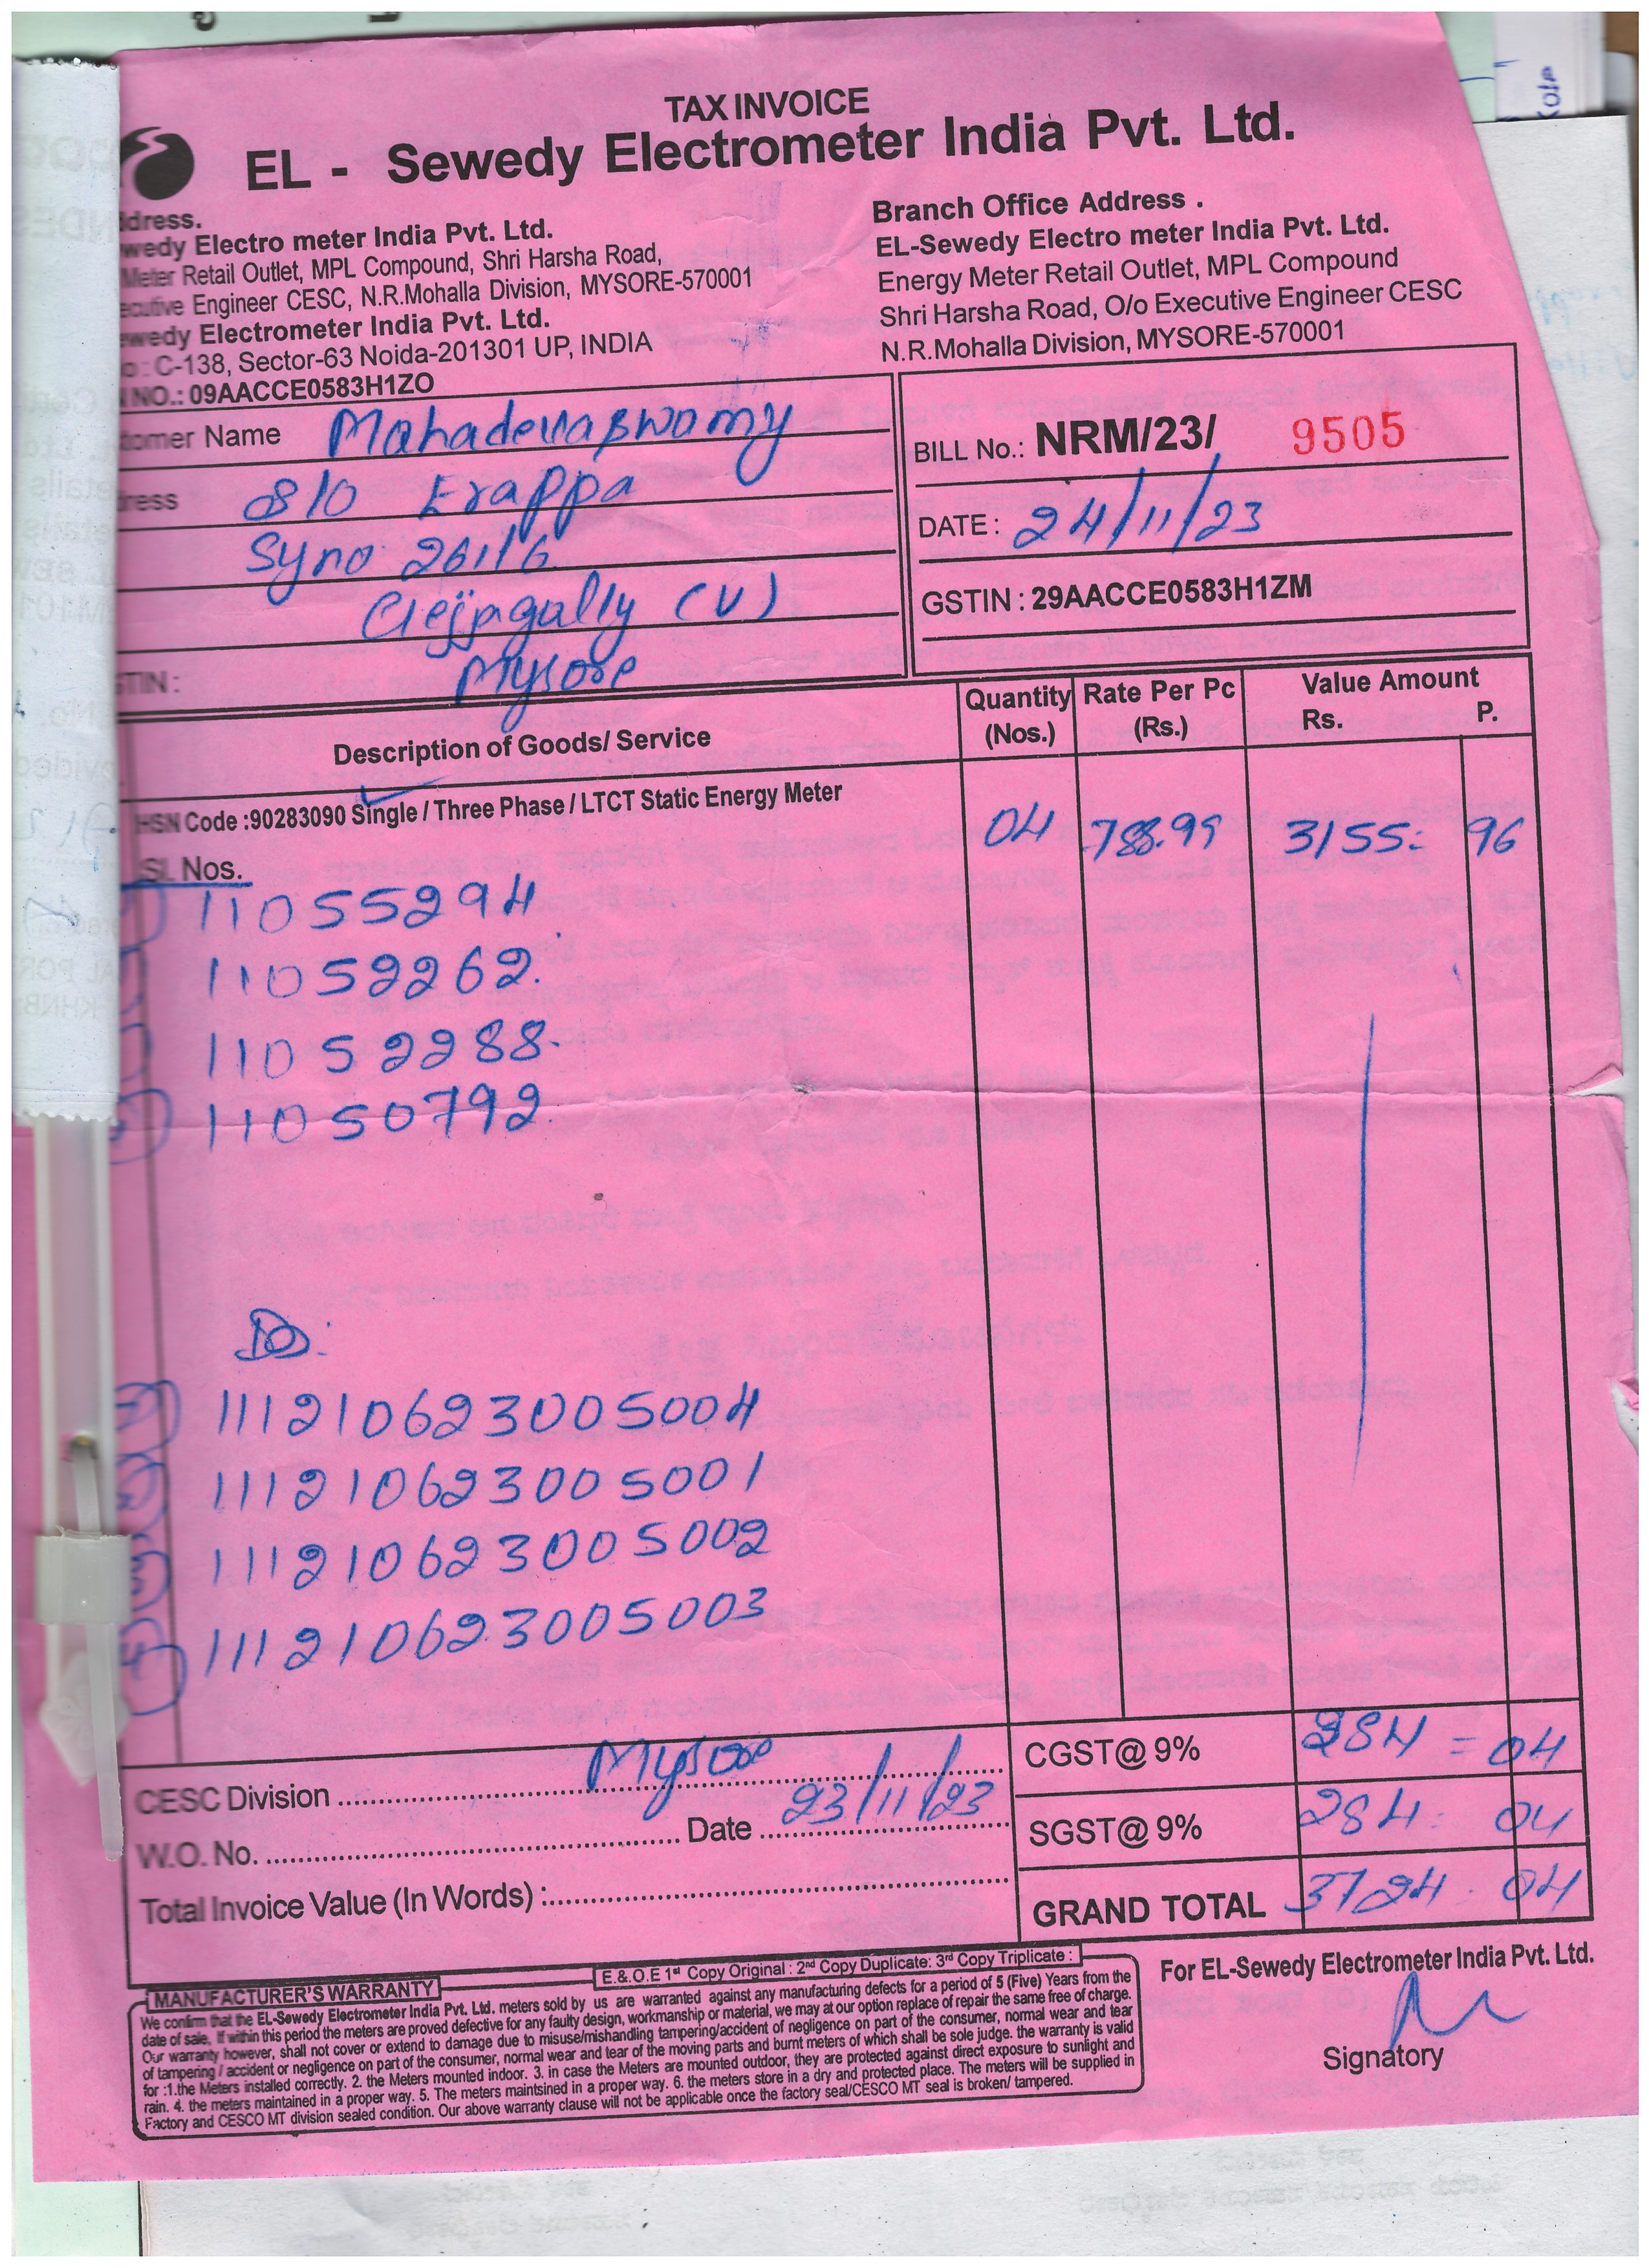 TAX INVOICE
EL - Sewedy Electrometer India Pvt. Ltd.
dress.
wedy Electro meter India Pvt. Ltd.
Meter Retail Outlet, MPL Compound, Shri Harsha Road,
ecutive Engineer CESC, N.R.Mohalla Division, MYSORE-570001
wedy Electrometer India Pvt. Ltd.
o : C-138, Sector-63 Noida-201301 UP, INDIA
NO.: 09AACCE0583H1ZO
Branch Office Address .
EL-Sewedy Electro meter India Pvt. Ltd.
Energy Meter Retail Outlet, MPL Compound
Shri Harsha Road, O/o Executive Engineer CESC
N.R.Mohalla Division, MYSORE-570001
tomer Name Mahadevaswamy
ress S/o Erappa
Syno 261/6
(V)
STIN : Mysore
BILL No.: NRM/23/ 9505
DATE : 24/11/23
GSTIN : 29AACCE0583H1ZM
Description of Goods/ Service Quantity (Nos.) Rate Per Pc (Rs.) Value Amount Rs. P.
HSN Code :90283090 Single / Three Phase / LTCT Static Energy Meter 04 788.99 3155: 96
SL Nos.
11055294
11052262.
11052288.
11050792.
111210623005004
111210623005001
111210623005002
111210623005003
CESC Division Mysore
W.O. No. Date 23/11/23
Total Invoice Value (In Words) :
CGST@ 9% 284 = 04
SGST@ 9% 284: 04
GRAND TOTAL 3724. 04
E.&.O.E 1st Copy Original : 2nd Copy Duplicate: 3rd Copy Triplicate :
MANUFACTURER'S WARRANTY
We confirm that the EL-Sewedy Electrometer India Pvt. Ltd. meters sold by us are warranted against any manufacturing defects for a period of 5 (Five) Years from the
date of sale. If within this period the meters are proved defective for any faulty design, workmanship or material, we may at our option replace of repair the same free of charge.
Our warranty however, shall not cover or extend to damage due to misuse/mishandling tampering/accident of negligence on part of the consumer, normal wear and tear
of tampering / accident or negligence on part of the consumer, normal wear and tear of the moving parts and burnt meters of which shall be sole judge. the warranty is valid
for :1.the Meters installed correctly. 2. the Meters mounted indoor. 3. in case the Meters are mounted outdoor, they are protected against direct exposure to sunlight and
rain. 4. the meters maintained in a proper way. 5. The meters maintsined in a proper way. 6. the meters store in a dry and protected place. The meters will be supplied in
Factory and CESCO MT division sealed condition. Our above warranty clause will not be applicable once the factory seal/CESCO MT seal is broken/ tampered.
For EL-Sewedy Electrometer India Pvt. Ltd.
Signatory